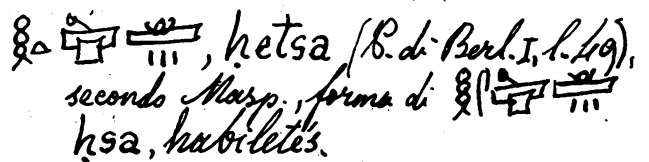 , ḥetsa (P. di Berl. I, l. 49),
secondo Masp., forma di
ḥsa, habiletés.